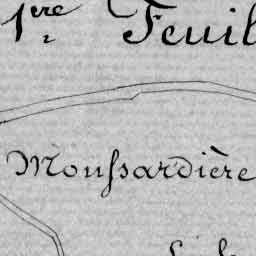 1ère Feuil
Moussardière